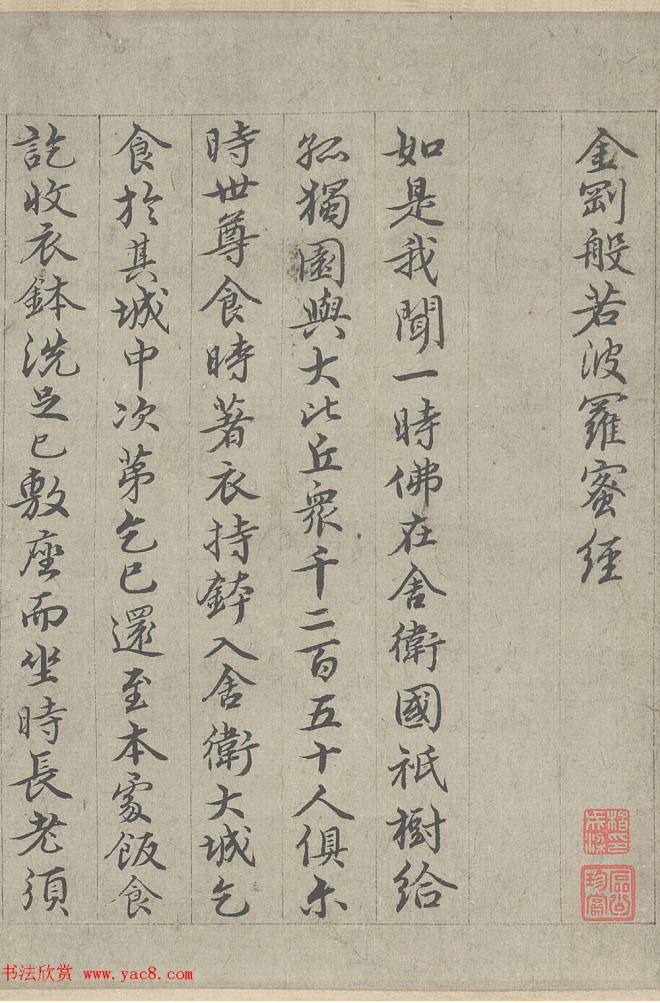 金剛般若波羅蜜經
如是我聞一時佛在舍衛國祇樹給
孤獨園與大比丘衆千二百五十人俱尒
時世尊食時著衣持鉢入舍衛大城乞
食於其城中次第乞已還至本處飯食
訖收衣鉢洗足已敷座而坐時長老須
书法欣赏 www.yac8.com